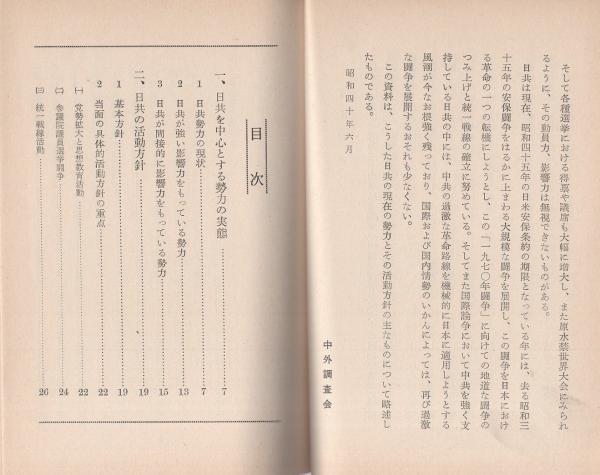 そして各種選挙における得票や議席も大幅に増大し、また原水禁世界大会にみられ
るように、その動員力、影響力は無視できないものがある。
日共は現在、昭和四十五年の日米安保条約の期限となっている年には、去る昭和三
十五年の安保闘争をはるかに上まわる大規模な闘争を展開し、この闘争を日本におけ
る革命の一つの転機にしようとし、この「一九七〇年闘争」に向けての地道な闘争の
つみ上げと統一戦線の確立に努めている。そしてまた国際論争において中共を強く支
持している日共の中には、中共の過激な革命路線を機械的に日本に適用しようとする
風潮が今なお根強く残っており、国際および国内情勢のいかんによっては、再び過激
な闘争を展開するおそれも少なくない。
この資料は、こうした日共の現在の勢力とその活動方針の主なものについて略述し
たものである。
昭和四十年六月
中外調査会
目次
一、日共を中心とする勢力の実態……7
1 日共勢力の現状……7
2 日共が強い影響力をもっている勢力……13
3 日共が間接的に影響力をもっている勢力……15
二、日共の活動方針……19
1 基本方針……19
2 当面の具体的活動方針の重点……22
㈠ 党勢拡大と思想教育活動……22
㈡ 参議院議員選挙闘争……24
㈢ 統一戦線活動……26